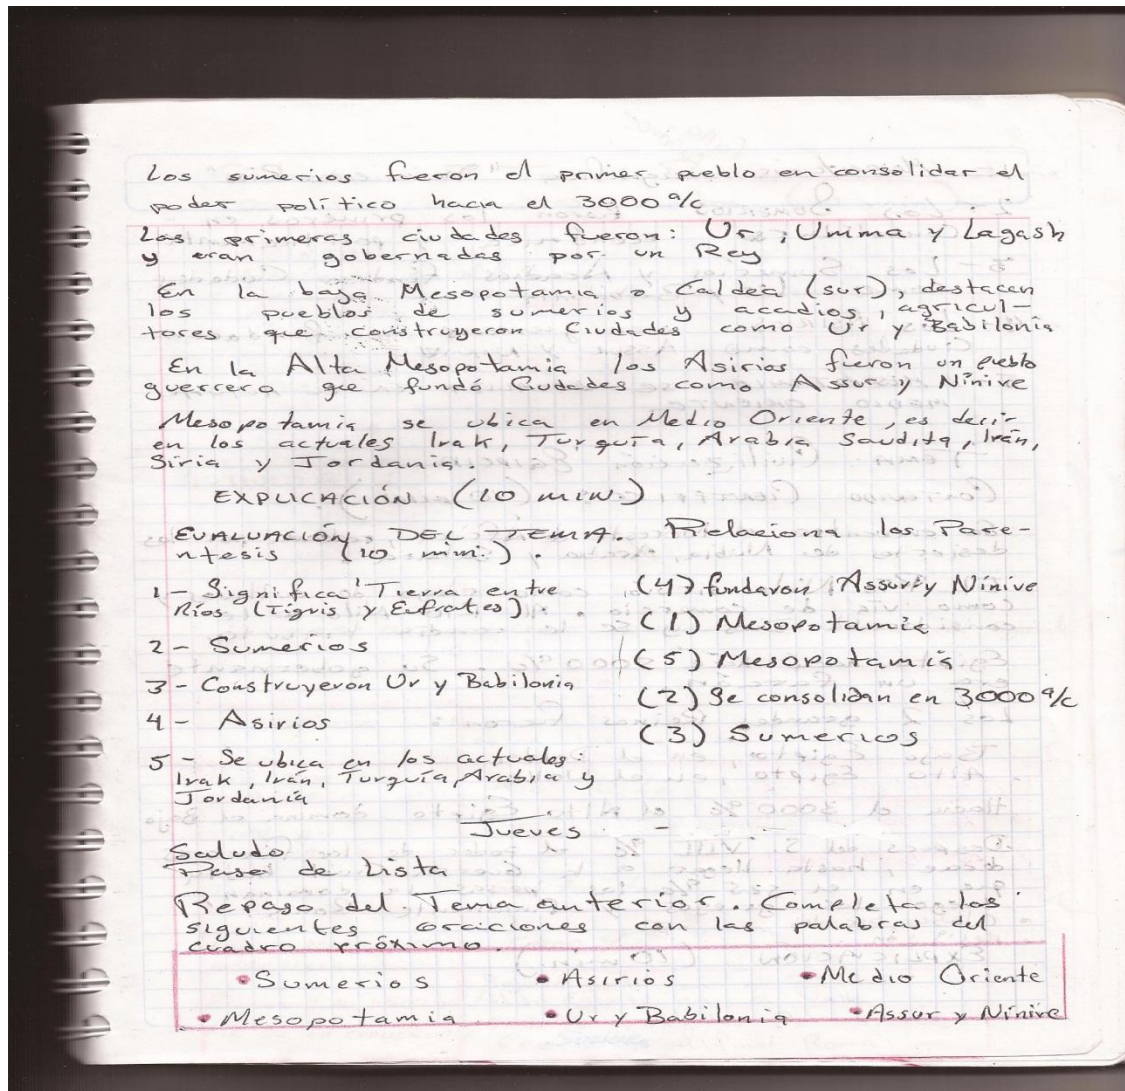 Los sumerios fueron el primer pueblo en consolidar el
poder político hacia el 3000 a/c
Las primeras ciudades fueron: Ur, Umma y Lagash
y eran gobernadas por un Rey
En la baja Mesopotamia o Caldea (sur), destacan
los pueblos de sumerios y acadios, agricul-
tores que construyeron Ciudades como Ur y Babilonia
En la Alta Mesopotamia los Asirios fueron un pueblo
guerrero que fundó Ciudades como Assur y Nínive
Mesopotamia se ubica en Medio Oriente, es decir
en los actuales Irak, Turquía, Arabia Saudita, Irán,
Siria y Jordania.
EXPLICACIÓN (10 min.)
EVALUACIÓN DEL TEMA. Relaciona los Pare-
ntesis (10 min.).
1- Significa Tierra entre
Ríos (Tigris y Eufrates)
2- Sumerios
3- Construyeron Ur y Babilonia
4- Asirios
5- Se ubica en los actuales:
Irak, Irán, Turquía, Arabia y
Jordania
(4) fundaron Assur y Nínive
(1) Mesopotamia
(5) Mesopotamia
(2) Se consolidan en 3000 a/c
(3) Sumericos
Jueves -
Saludo
Pase de Lista
Repaso del Tema anterior. Completa las
siguientes oraciones con las palabras del
cuadro próximo.
• Sumerios • Asirios • Medio Oriente
• Mesopotamia • Ur y Babilonia • Assur y Nínive